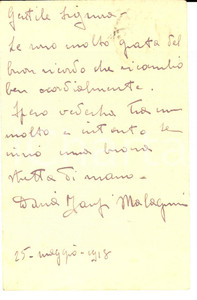 Gentile Signora -
Le sono molto grata del
buon ricordo che ricambio
ben cordialmente.
Spero vederla tra non
molto e intanto le
invio una buona
stretta di mano -
Malaguzzi
25 - maggio - 1918